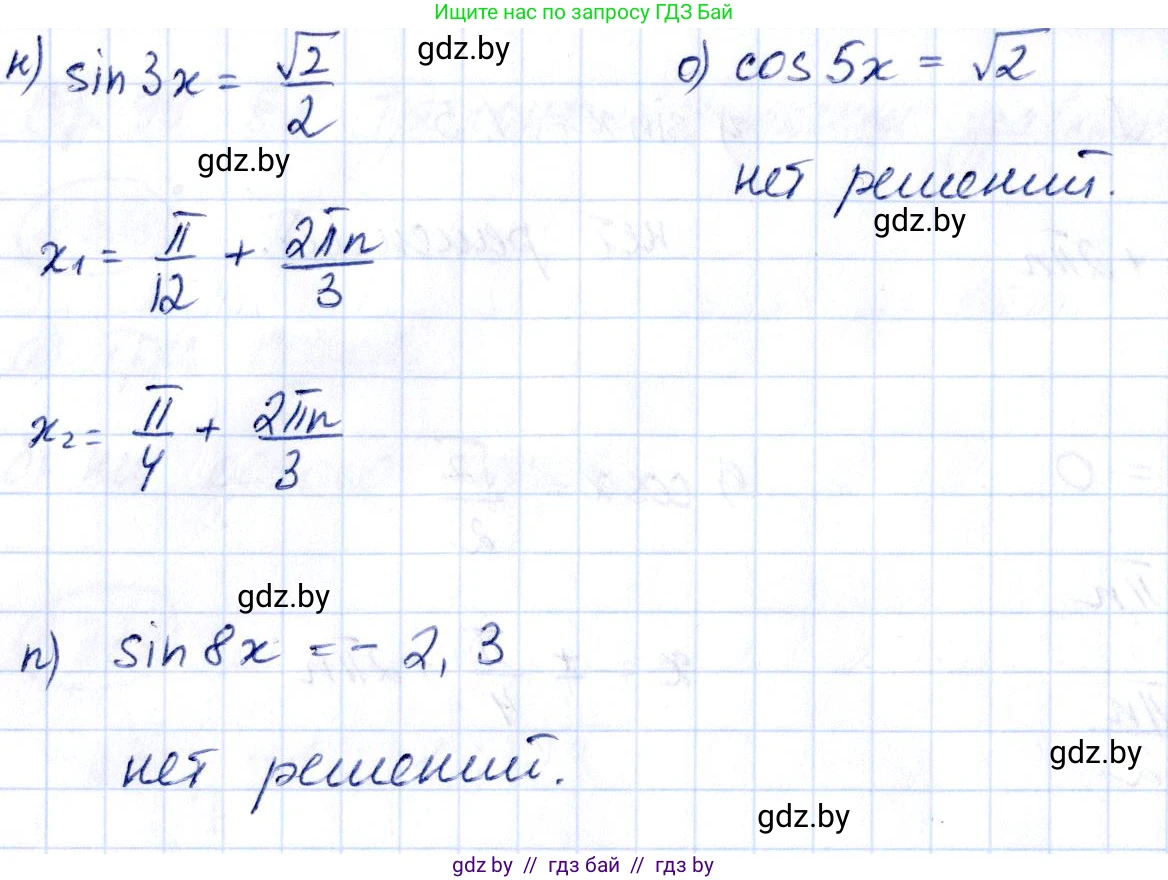 Ищите нас по запросу ГДЗ Бай
н) sin 3x = √2/2
gdz.by
gdz.by
x₁ = π/12 + 2πn/3
x₂ = π/4 + 2πn/3
о) cos 5x = √2
нет решений.
gdz.by
gdz.by
п) sin 8x = - 2,3
нет решений.
gdz.by
gdz.by
gdz.by // гдз бай // гдз by